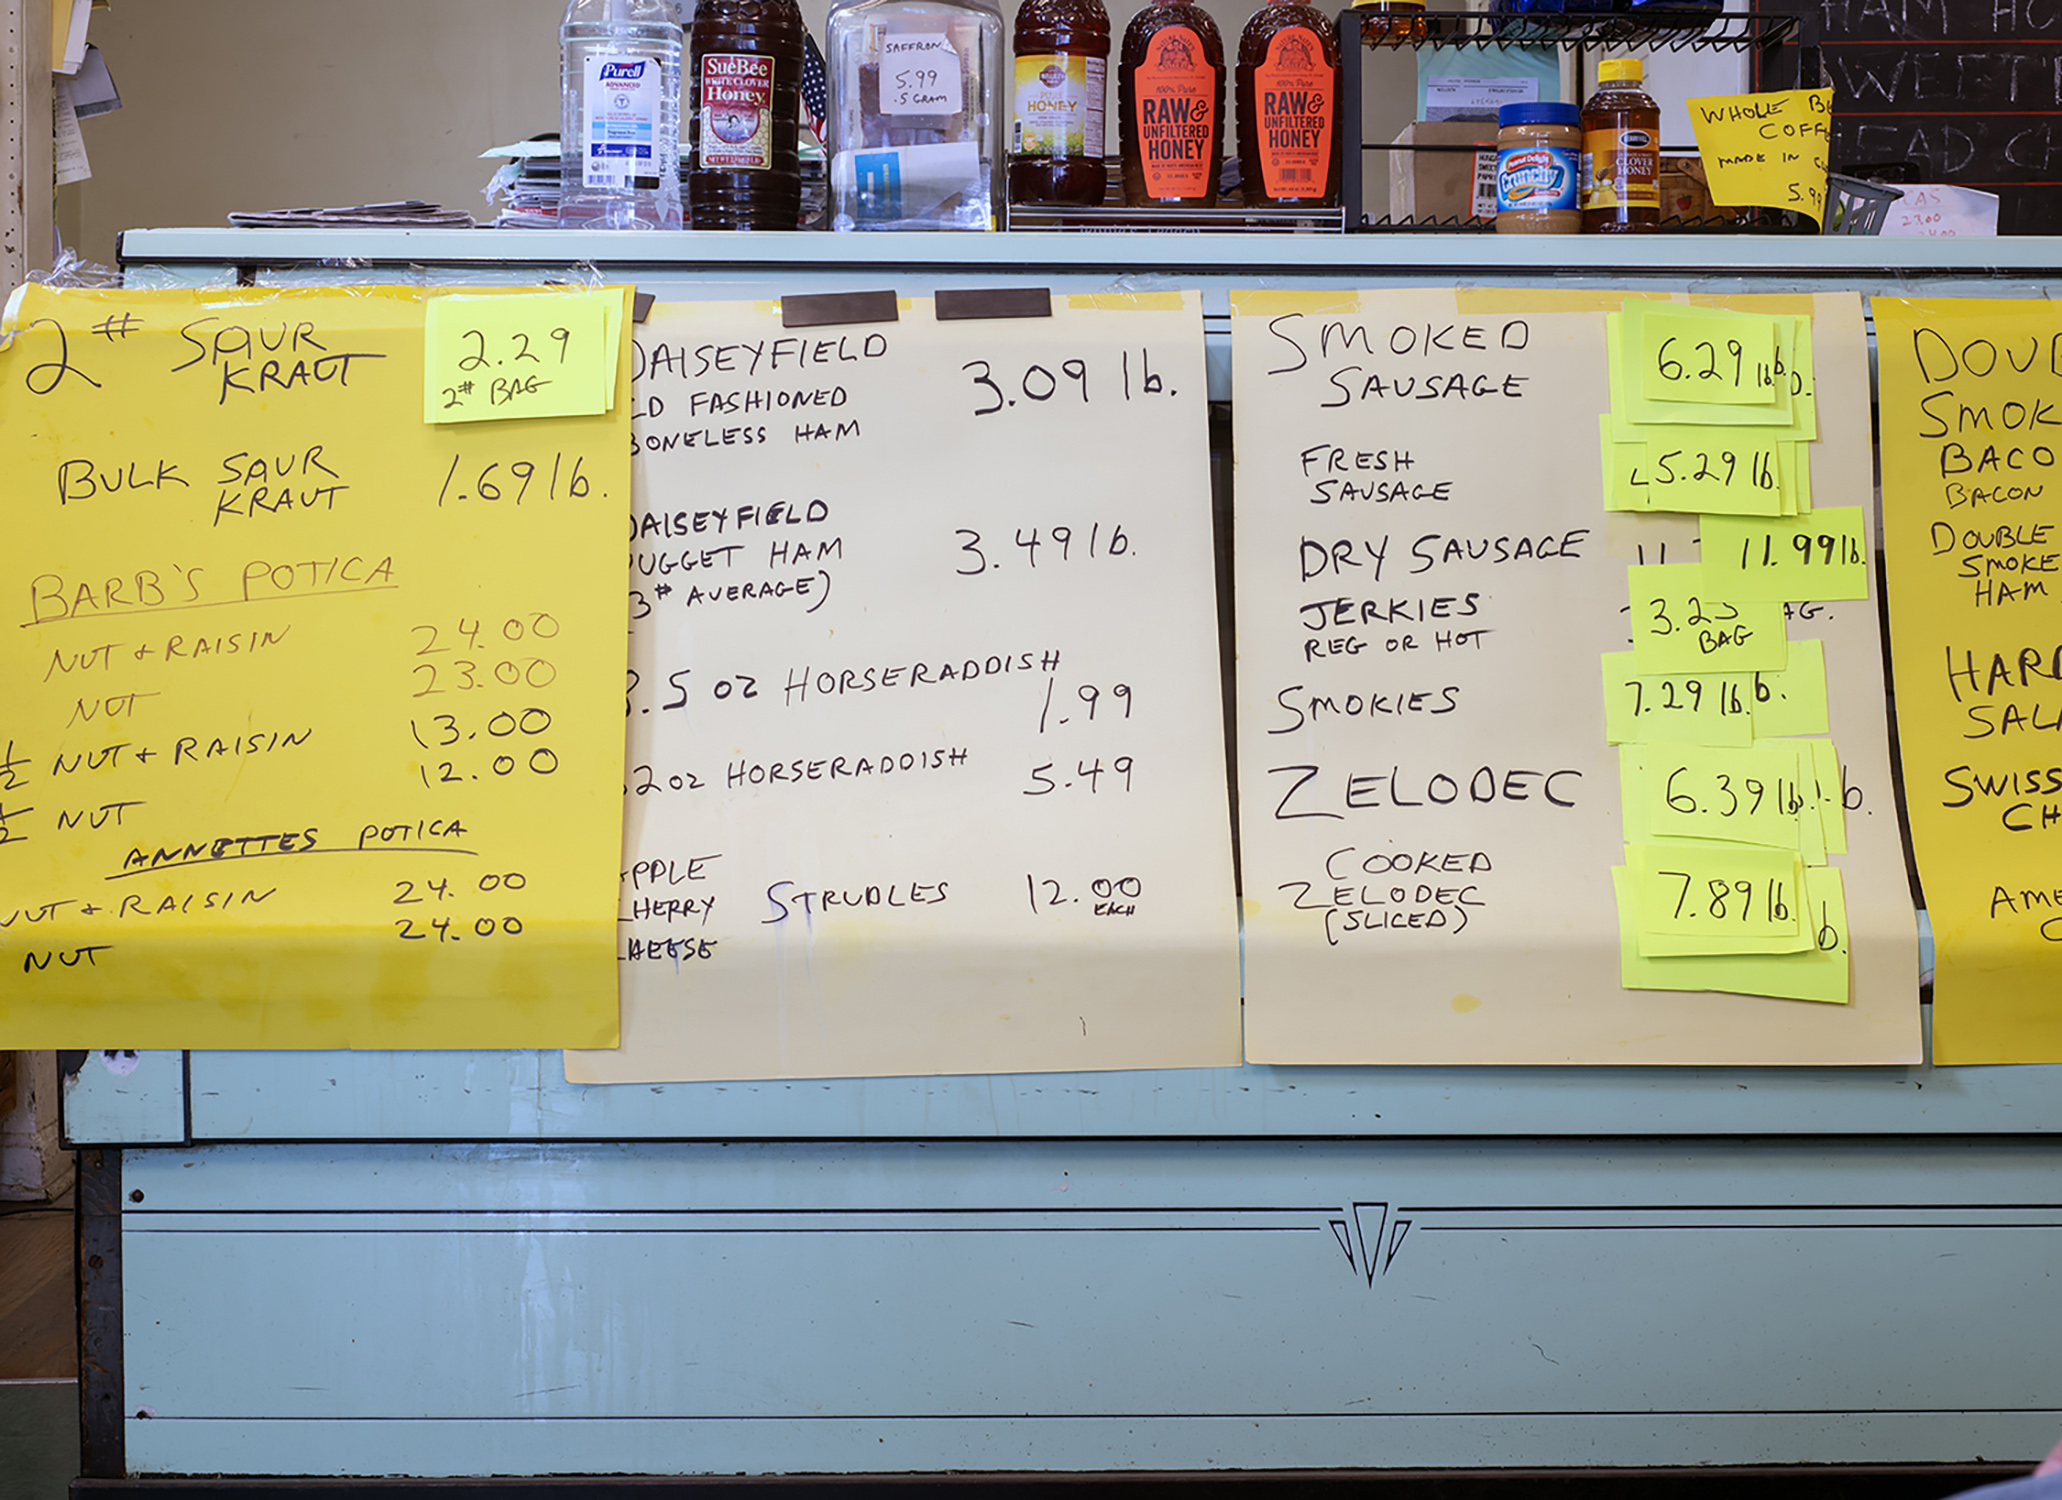 Purell
ADVANCED
SueBee
WHITE CLOVER
Honey
SAFFRON
5.99
.5 GRAM
PURE
HONEY
100% Pure
RAW &
UNFILTERED
HONEY
100% Pure
RAW &
UNFILTERED
HONEY
Peanut Delight
Crunchy
CLOVER
HONEY
WHOLE BE
COFF
MADE IN
5.99
23.00
HAM
2# SAUR
KRAUT
2.29
2# BAG
BULK SAUR
KRAUT
1.69 lb.
BARB'S POTICA
NUT & RAISIN 24.00
NUT 23.00
1/2 NUT & RAISIN 13.00
1/2 NUT 12.00
ANNETTES POTICA
NUT & RAISIN 24.00
NUT 24.00
DAISEYFIELD
LD FASHIONED
BONELESS HAM
3.09 lb.
DAISEYFIELD
UGGET HAM
3.49 lb.
(3# AVERAGE)
.5 OZ HORSERADDISH
1.99
2 OZ HORSERADDISH 5.49
PPLE
HERRY STRUDLES 12.00
EACH
HEESE
SMOKED
SAUSAGE
6.29 lb.
FRESH
SAUSAGE
5.29 lb.
DRY SAUSAGE 11.99 lb.
JERKIES
REG OR HOT
3.25
BAG
AG.
SMOKIES 7.29 lb.
ZELODEC 6.39 lb.
COOKED
ZELODEC
(SLICED)
7.89 lb.
DOUB
SMOK
BACO
BACON
DOUBLE
SMOKE
HAM
HARD
SALA
SWISS
CH
AME
C